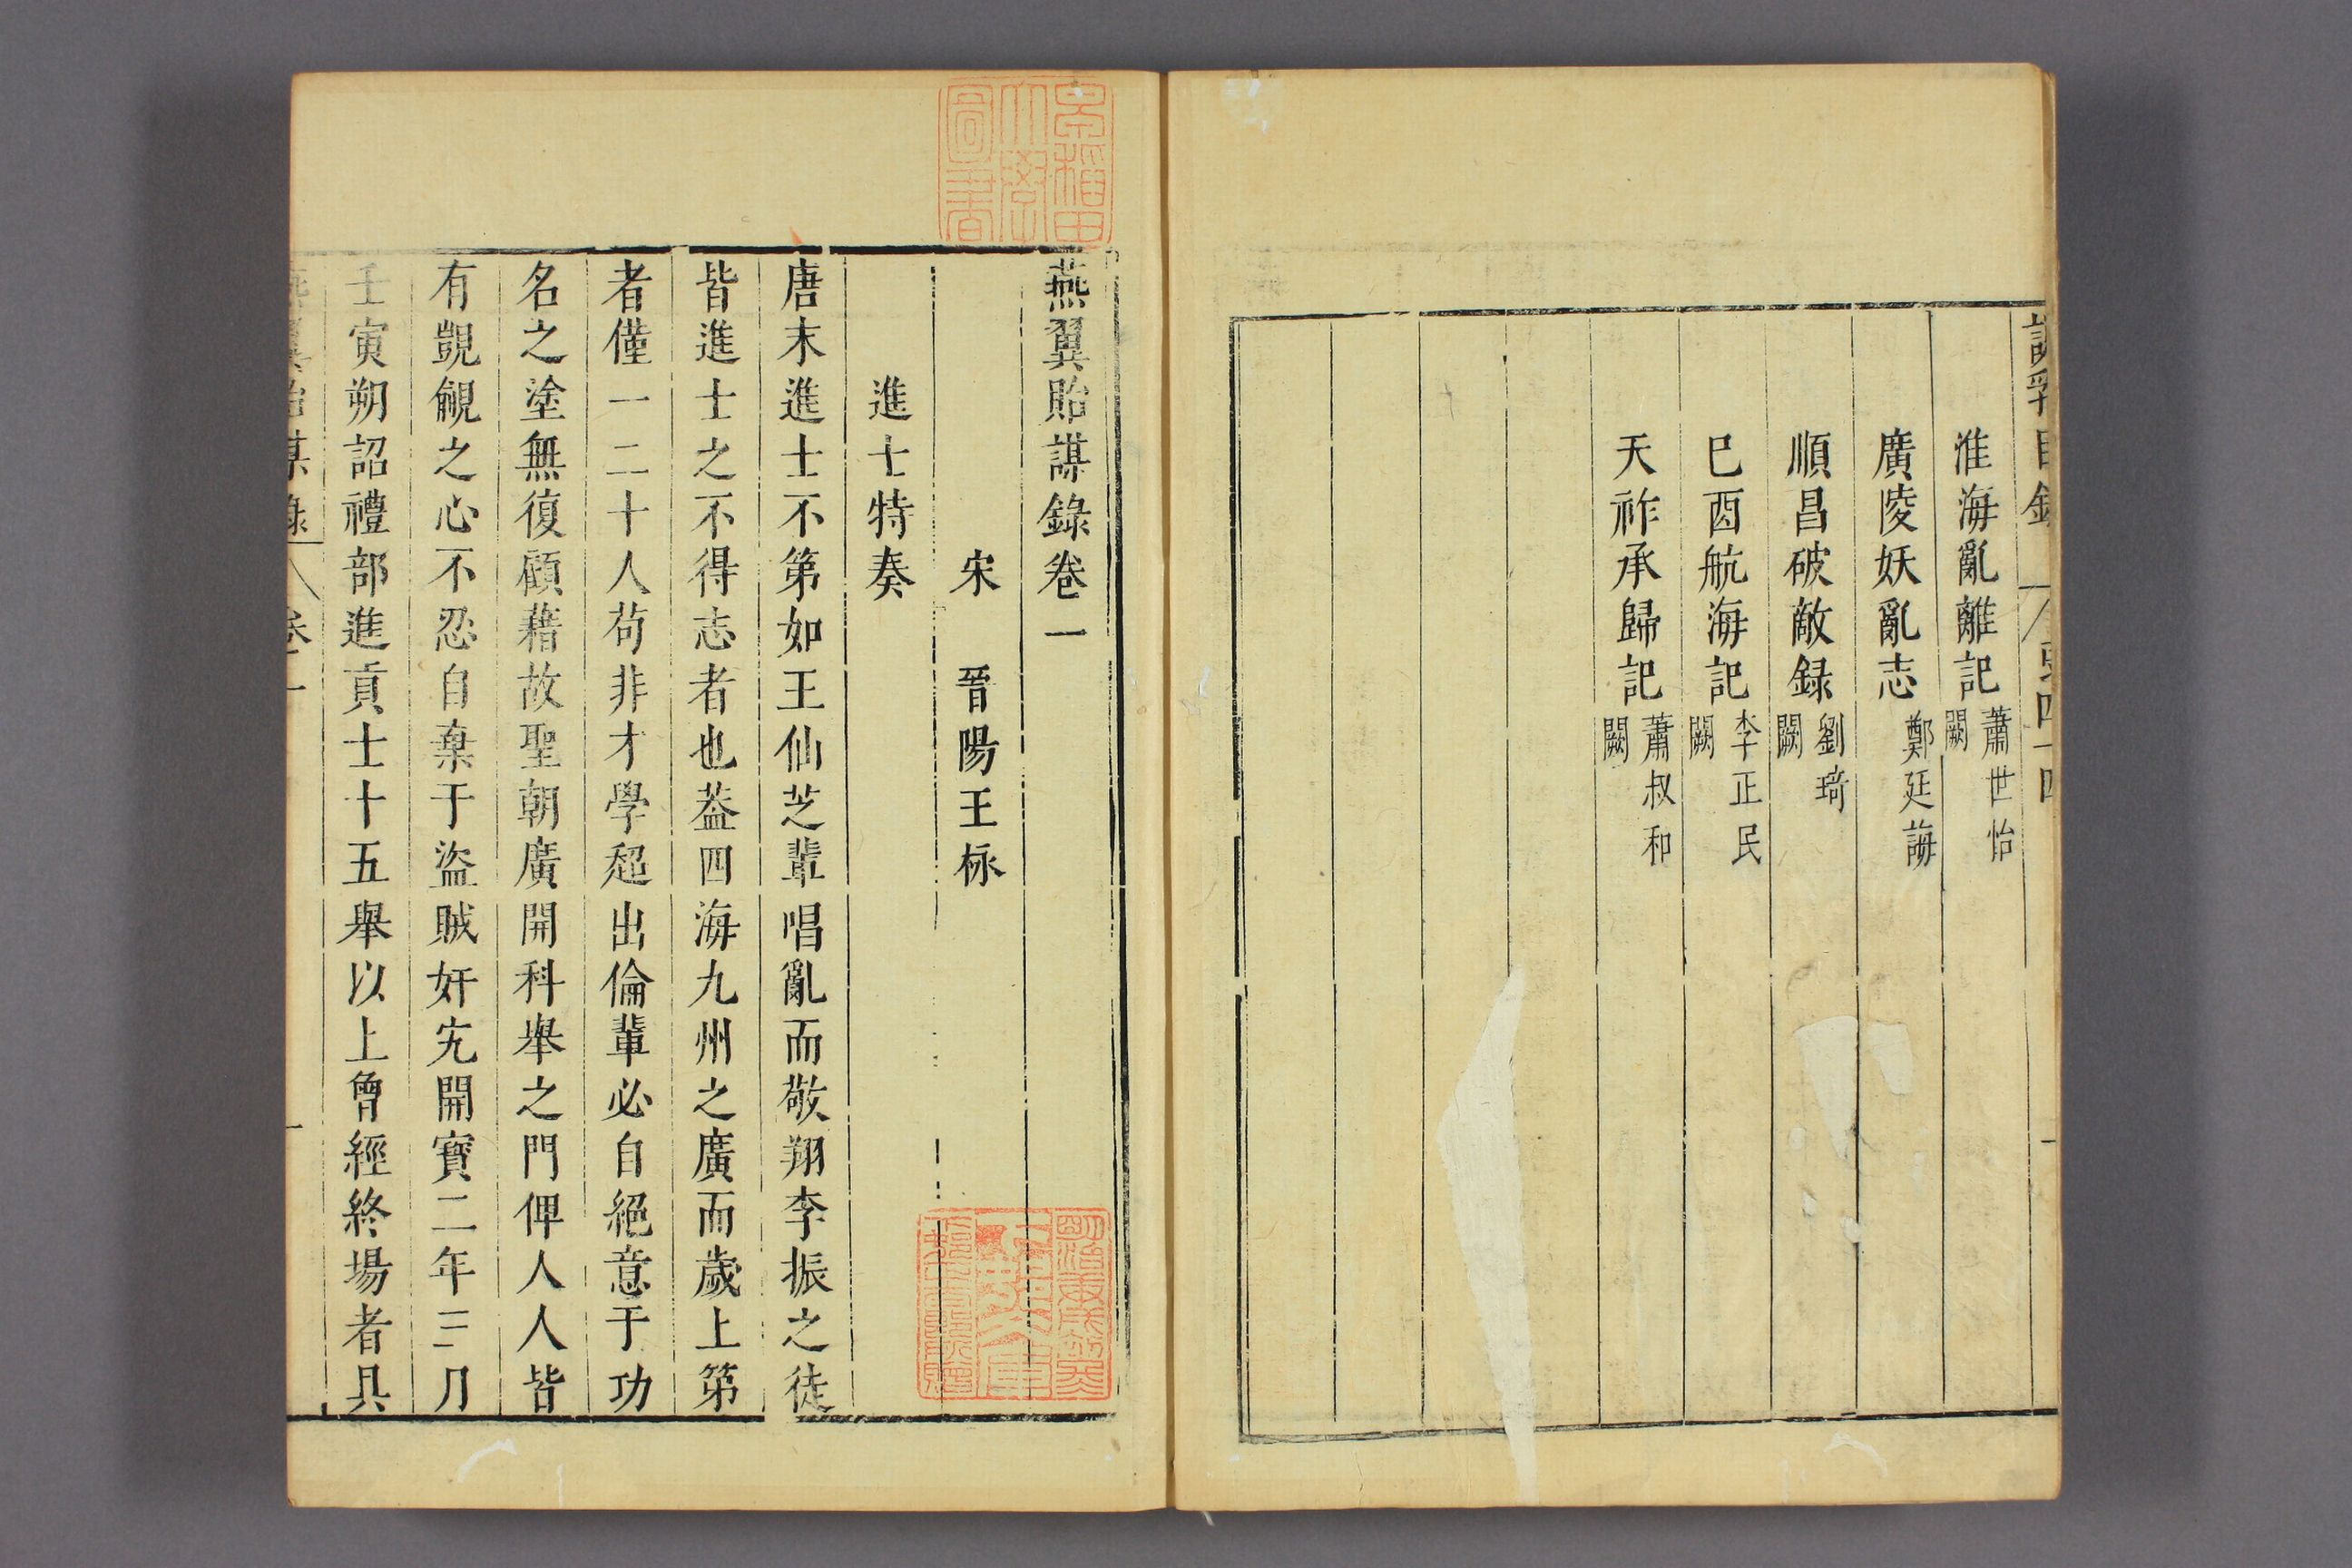 淮海亂離記 蕭世怡 闕
廣陵妖亂志 鄭廷誨
順昌破敵録 劉琦 闕
巳酉航海記 李正民 闕
天祚承歸記 蕭叔和 闕
早稻田
大學
圖書
燕翼貽謀錄卷一
宋 晉陽王栐
進士特奏
唐末進士不第如王仙芝輩唱亂而敬翔李振之徒
皆進士之不得志者也葢四海九州之廣而歲上第
者僅一二十人苟非才學超出倫輩必自絕意于功
名之塗無復顧藉故聖朝廣開科舉之門俾人人皆
有覬覦之心不忍自棄于盜賊奸宄開寶二年三月
壬寅朔詔禮部進貢士十五舉以上曾經終場者具